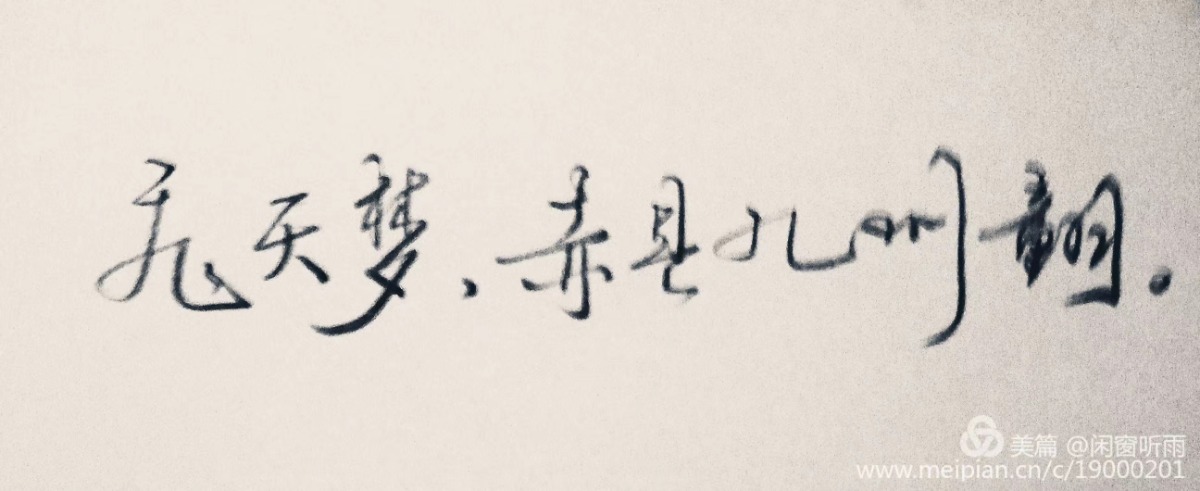 飞天梦、赤县九州翻。
美篇 @闲窗听雨
www.meipian.cn/c/19000201